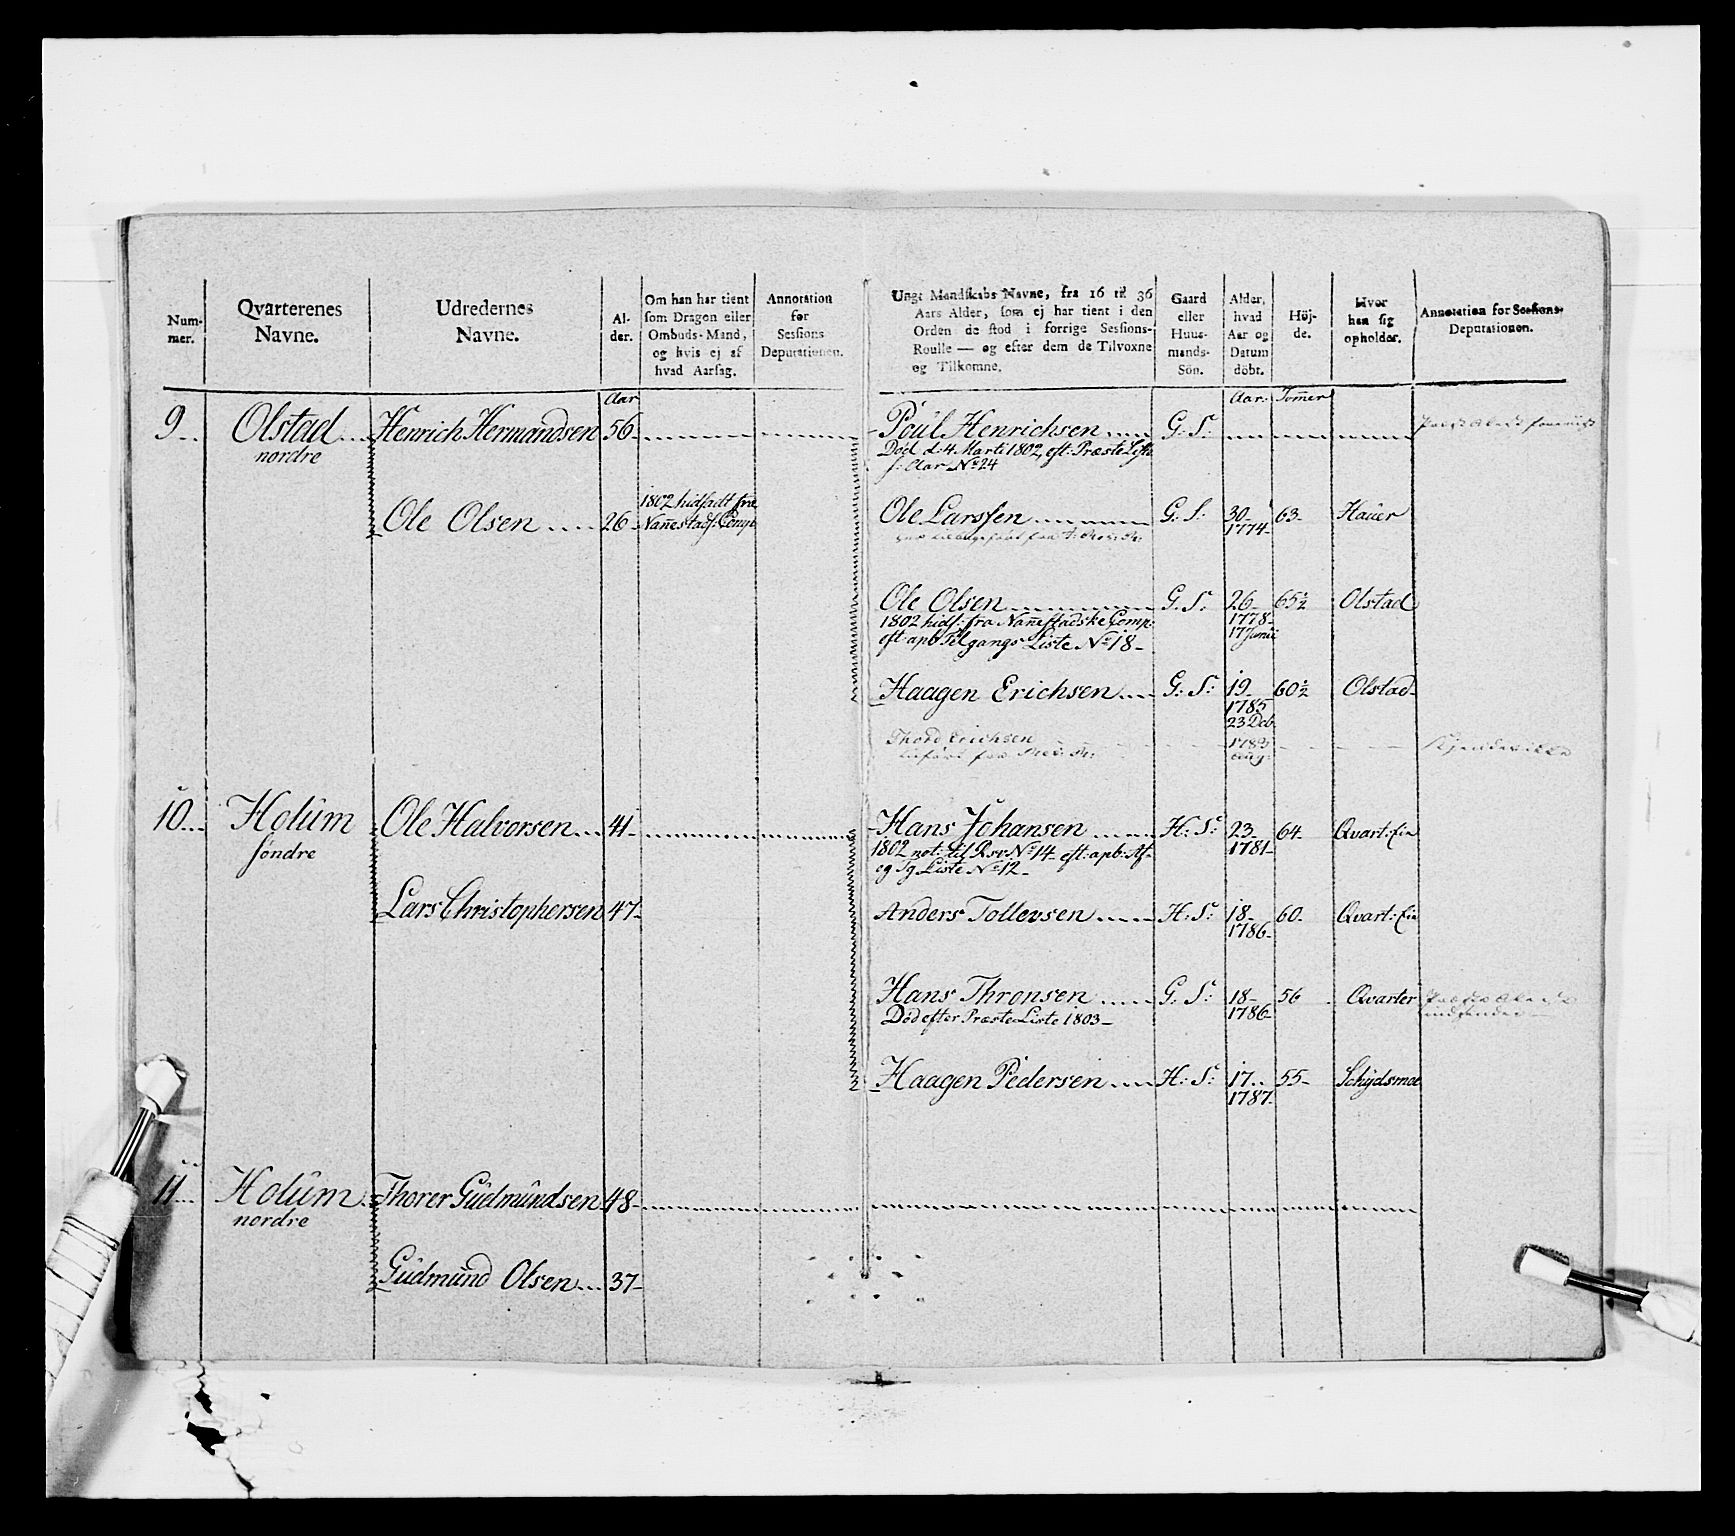 Num-
mer.
Qvarterenes
Navne.
Udredernes
Navne.
Al-
der.
Om han har tient
som Dragon eller
Ombuds-Mand,
og hvis ej af
hvad Aarsag.
Annotation
for
Sessions
Deputationen.
Ungt Mandskabs Navne, fra 16 til 36
Aars Alder, som ej har tient i den
Orden de stod i forrige Sessions-
Roulle — og efter dem de Tilvoxne
og Tilkomne.
Gaard
eller
Huus-
mands-
Sön.
Alder,
hvad
Aar og
Datum
döbt.
Höj-
de.
Hvor
han sig
opholder.
Annotation for Sessions-
Deputationen.
Aar
Aar. Tommer
9 Olstad Henrich Hermandsen 56
nordre
Poul Henrichsen G: S:
Død d: 4 Marti 1802, eft: Præste Liste
f: Aar No 24
Ole Olsen 26 1802 hidsadt fra
Nanestads Comp
Ole Larssen G: S: 30 63 Hauer
1774
Ole Olsen G: S: 26 65½ Olstad
1802 hids: fra Nanestadske Comp: 1778
eft: apb Tilgangs Liste No 18 17 Junii
Haagen Erichsen G: S: 19 60½ Olstad
1785
23 Deb
Thord Erichsen 1783
10 Holum Ole Halvorsen 41
søndre
Hans Johansen H: S: 23 64 Qvart: Ein
1802 not: til Rsv No 14 eft: apb: Af- 1781
og Tg Liste No 12
Lars Christophersen 47
Anders Tollevsen H: S: 18 60 Qvart: Ein
1786
Hans Thronsen G: S: 18 56 Qvarter
Død efter Præste Liste 1803 1786
Haagen Pedersen H: S: 17 55 Schydsmoe
1787
11 Holum Thorer Gudmundsen 48
nordre
Gudmund Olsen 37